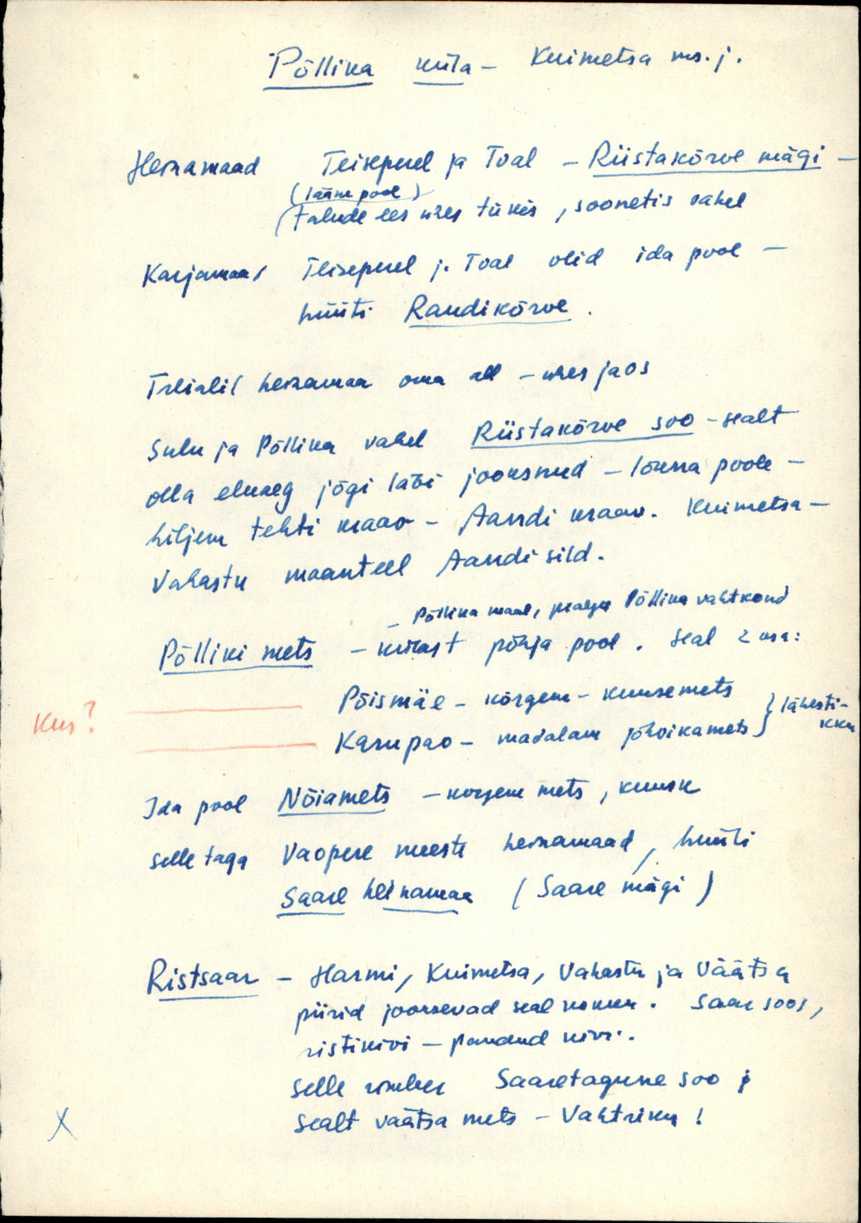 Põllika küla – Kuimetsa ms. j.
Heinamaad Teiseperel ja Toal – Riistakõrve mägi –
(lääne pool)
(talude ees ühes tükis, soonetis vahel
Karjamaad Teiseperel j. Toal olid ida pool –
hüüti Raudikõrve.
heinamaa oma all – ühes jaos
Sulu ja Põllika vahel Riistakõrve soo – sealt
olla eluaeg jõgi läbi jooksnud – lõuna poole –
hiljem tehti kraav – Aandi kraav. Kuimetsa –
Vahastu maanteel Aandi sild.
– Põllika maal, Põllika vahtkond
Põlliki mets – külast põhja pool. Seal 2 osa:
Põismäe – kõrgem – kuusemets } lähesti-
Kus? Karupao – madalam jõhvikamets } ikku
Ida pool Nõiamets – korgem mets, kuusk
selle taga Vaopere meeste heinamaad, hüüti
Saare heinamaa (Saare mägi)
Ristsaar – Harmi, Kuimetsa, Vahastu ja Väätsa
piirid jooksevad seal kokku. Saar soos,
ristikivi – pandud kivi.
Selle ümber Saaretagune soo j
sealt väätsa mets – Vahtriku!
X